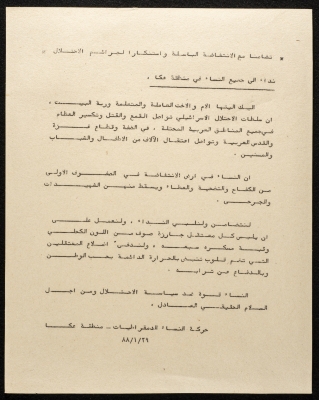 * تضامنا مع الانتفاضة الباسلة واستنكارا لجرائم الاحتلال *
نداء الى جميع النساء في منطقة عكا .
اليك ايتها الام والاخت العاملة والمتعلمة وربة البيت ،
ان سلطات الاحتلال الاسرائيلي تواصل القمع والقتل وتكسير العظام
في جميع المناطق العربية المحتلة ، في الضفة وقطاع غزة
والقدس العربية وتواصل اعتقال الآلاف من الاطفال والشباب
والمسنين .
ان النساء في اوج الانتفاضة في الصفوف الاولى
من الكفاح والتضحية والعطاء ويسقط منهن الشهيدات
والجرحى .
لنتضامن ولنلبي النداء ، ولنعمل على
ان يلبس كل معتقل جارزة صوف من اللون الكحلي
وكنبة مبكرة سميكة ، ولندفىء اضلاع المعتقلين
التي تضم قلوب تنبض بالحرارة الدائمة بحب الوطن
وبالدفاع عن ترابه .
النساء قوة ضد سياسة الاحتلال ومن اجل
السلام الحقيقي العادل .
حركة النساء الديمقراطيات - منطقة عكا
٨٨/١/٢٩